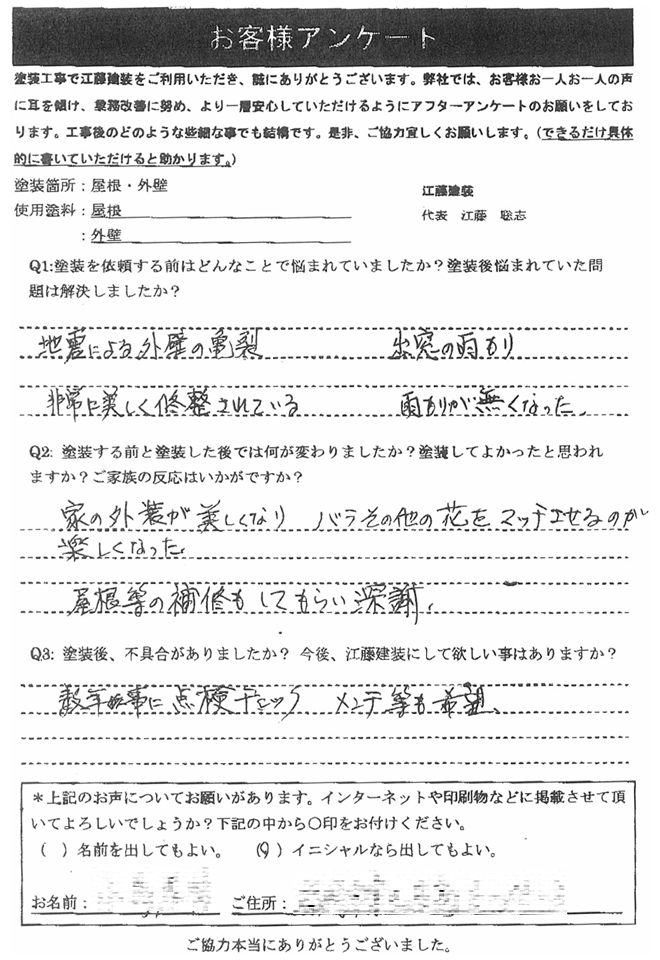 お客様アンケート
塗装工事で江藤建装をご利用いただき、誠にありがとうございます。弊社では、お客様お一人お一人の声
に耳を傾け、業務改善に努め、より一層安心していただけるようにアフターアンケートのお願いをしてお
ります。工事後のどのような些細な事でも結構です。是非、ご協力宜しくお願いします。(できるだけ具体
的に書いていただけると助かります。)
塗装箇所：屋根・外壁
江藤建装
使用塗料：屋根
代表 江藤 聡志
：外壁
Q1:塗装を依頼する前はどんなことで悩まれていましたか？塗装後悩まれていた問
題は解決しましたか？
地震による外壁の亀裂 出窓の雨もり
非常に美しく修整されている 雨もりが無くなった。
Q2: 塗装する前と塗装した後では何が変わりましたか？塗装してよかったと思われ
ますか？ご家族の反応はいかがですか？
家の外装が美しくなり バラその他の花をマッチさせるのが
楽しくなった。
屋根等の補修もしてもらい深謝。
Q3: 塗装後、不具合がありましたか？ 今後、江藤建装にして欲しい事はありますか？
数年毎に点検チェック メンテ等も希望。
＊上記のお声についてお願いがあります。インターネットや印刷物などに掲載させて頂
いてよろしいでしょうか？下記の中から〇印をお付けください。
( )名前を出してもよい。 (〇)イニシャルなら出してもよい。
お名前： ご住所：
ご協力本当にありがとうございました。